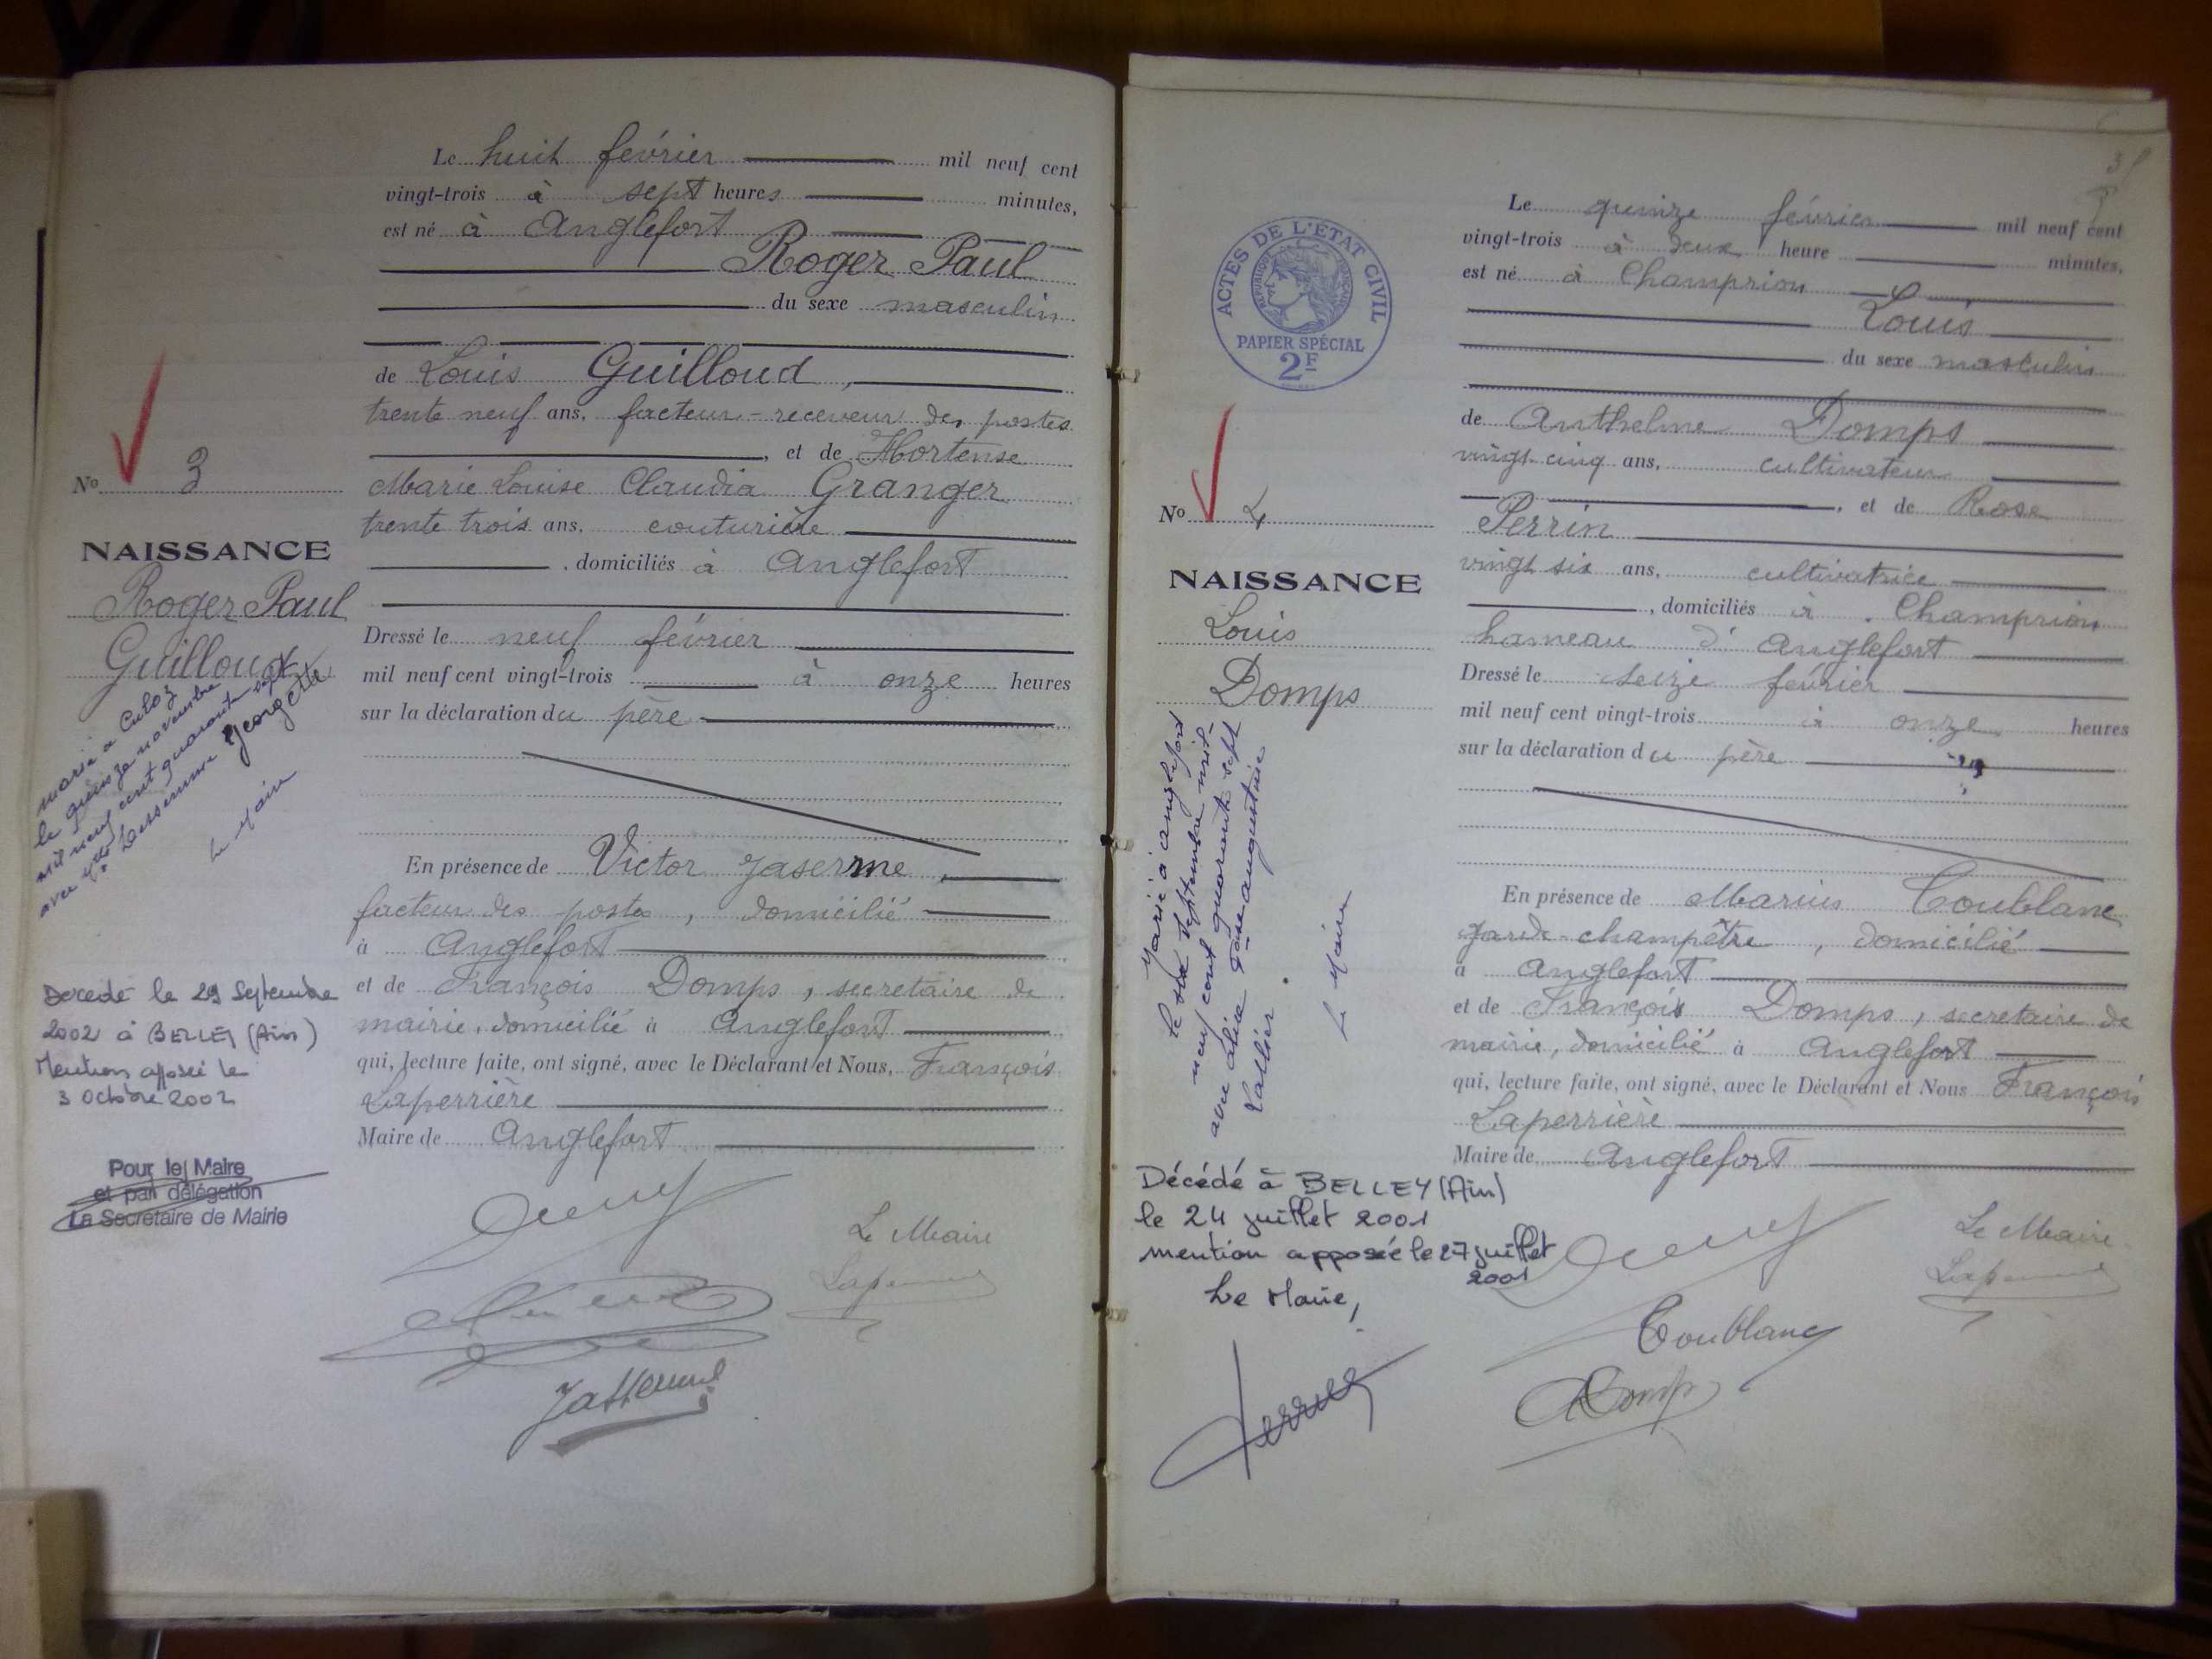 Le huit février mil neuf cent
vingt-trois à sept heures minutes,
est né à Anglefort
Roger Paul
du sexe masculin
de Louis Guilloud,
trente neuf ans, facteur-receveur des postes
, et de Hortense
Marie Louise Claudia Granger
trente trois ans, couturière
, domiciliés à Anglefort
Dressé le neuf février
mil neuf cent vingt-trois à onze heures
sur la déclaration du père
En présence de Victor Jaserme,
facteur des postes, domicilié
à Anglefort
et de François Domps, secretaire de
mairie, domicilié à Anglefort
qui, lecture faite, ont signé, avec le Déclarant et Nous, François
Laperrière
Maire de Anglefort
Le Maire
No 3
NAISSANCE
Roger Paul
Guilloud
marié à Culoz
le quinze novembre
mil neuf cent quarante sept
avec Georgette
Le Maire
Decedé le 29 Septembre
2002 à BELLEY (Ain)
Mention apposée le
3 Octobre 2002
Pour le Maire
et par délégation
La Secrétaire de Mairie
ACTES DE L'ÉTAT CIVIL
RÉPUBLIQUE FRANÇAISE
PAPIER SPÉCIAL
2F
Le quinze février mil neuf cent
vingt-trois à deux heure minutes,
est né à Champrion
Louis
du sexe masculin
de Anthelme Domps
vingt cinq ans, cultivateur
, et de Rose
Perrin
vingt six ans, cultivatrice
, domiciliés à Champrion
hameau d'Anglefort
Dressé le seize février
mil neuf cent vingt-trois à onze heures
sur la déclaration du père
En présence de Marius Coublanc
garde-champêtre, domicilié
à Anglefort
et de François Domps, secretaire de
mairie, domicilié à Anglefort
qui, lecture faite, ont signé, avec le Déclarant et Nous François
Laperrière
Maire de Anglefort
Le Maire
Coublanc
No 4
NAISSANCE
Louis
Domps
Marié à Anglefort
le six septembre mil
neuf cent quarante sept
avec
Le Maire
Décédé à BELLEY (Ain)
le 24 juillet 2001
mention apposée le 27 juillet
2001
Le Maire,